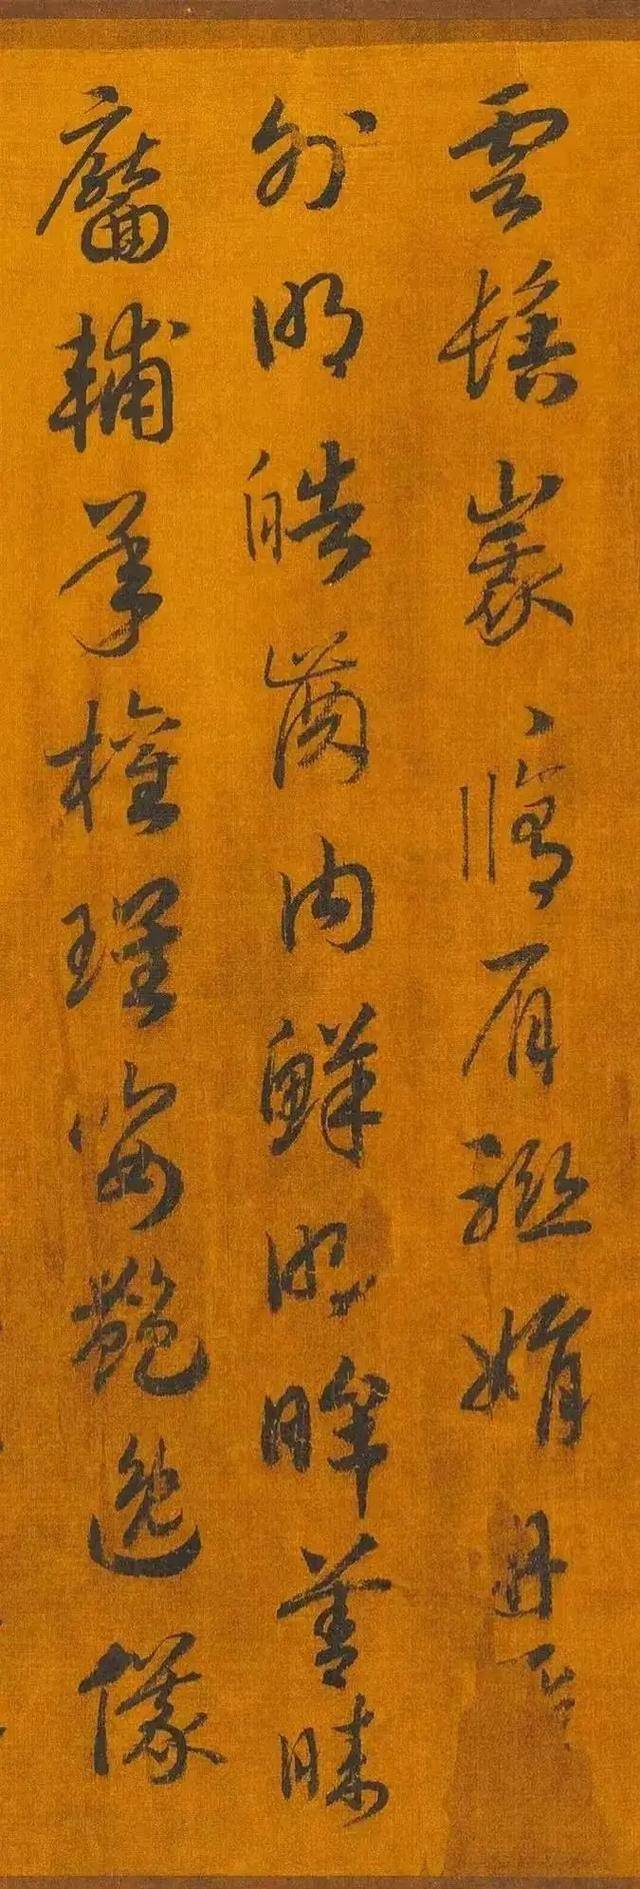 雲髻峩々脩眉聯娟丹
外朗皓齒內鮮明眸善睞
靨輔承權瓌姿艷逸儀